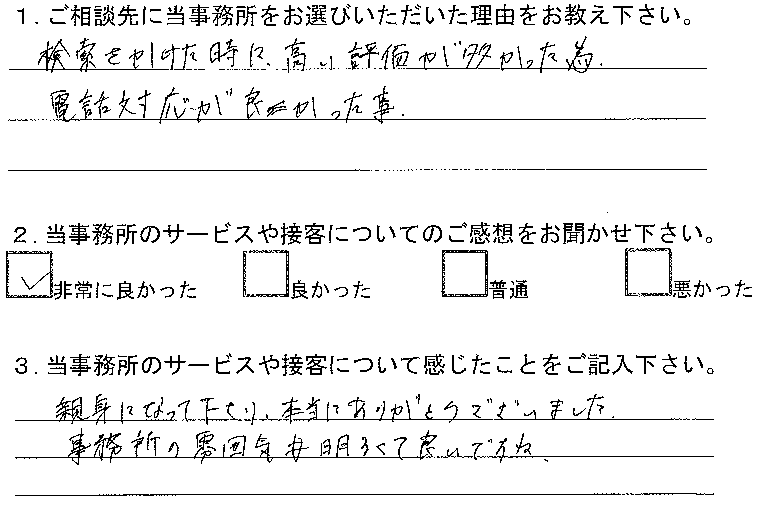 1．ご相談先に当事務所をお選びいただいた理由をお教え下さい。
検索をかけた時に、高い評価が多かった為．
電話対応が良かった事．
2．当事務所のサービスや接客についてのご感想をお聞かせ下さい。
非常に良かった 良かった 普通 悪かった
3．当事務所のサービスや接客について感じたことをご記入下さい。
親身になって下さり、本当にありがとうございました．
事務所の雰囲気も明るくて良いですね、